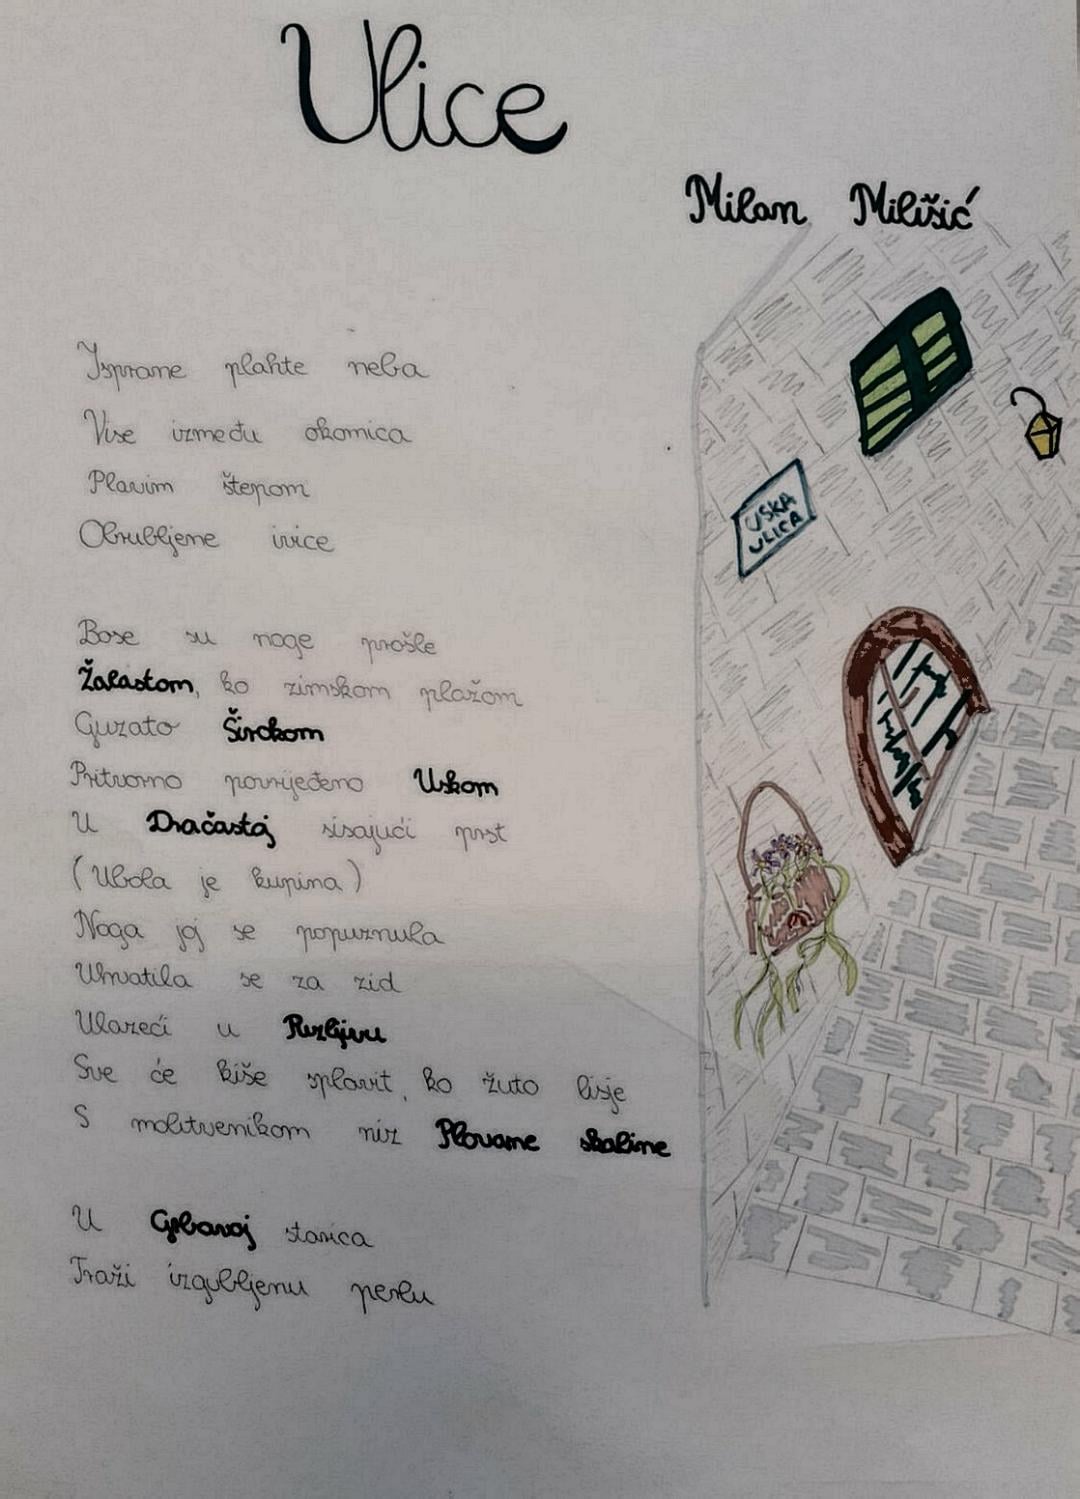 Ulice
Milan Milišić
Isprane plahte neba
Vise između okomica
Plavim štepom
Obrubljene ivice
USKA
ULICA
Bose su noge prošle
Žalastom, ko zimskom plažom
Guzato Širokom
Pritvorno povrijeđeno Uskom
U Dračastoj sisajući prst
(Ubola je kupina)
Noga joj se popuznula
Uhvatila se za zid
Ulazeći u Puzljivu
Sve će kiše splavit, ko žuto lišje
S molitvenikom niz Plovane skaline
U Grbavoj starica
Traži izgubljenu perlu